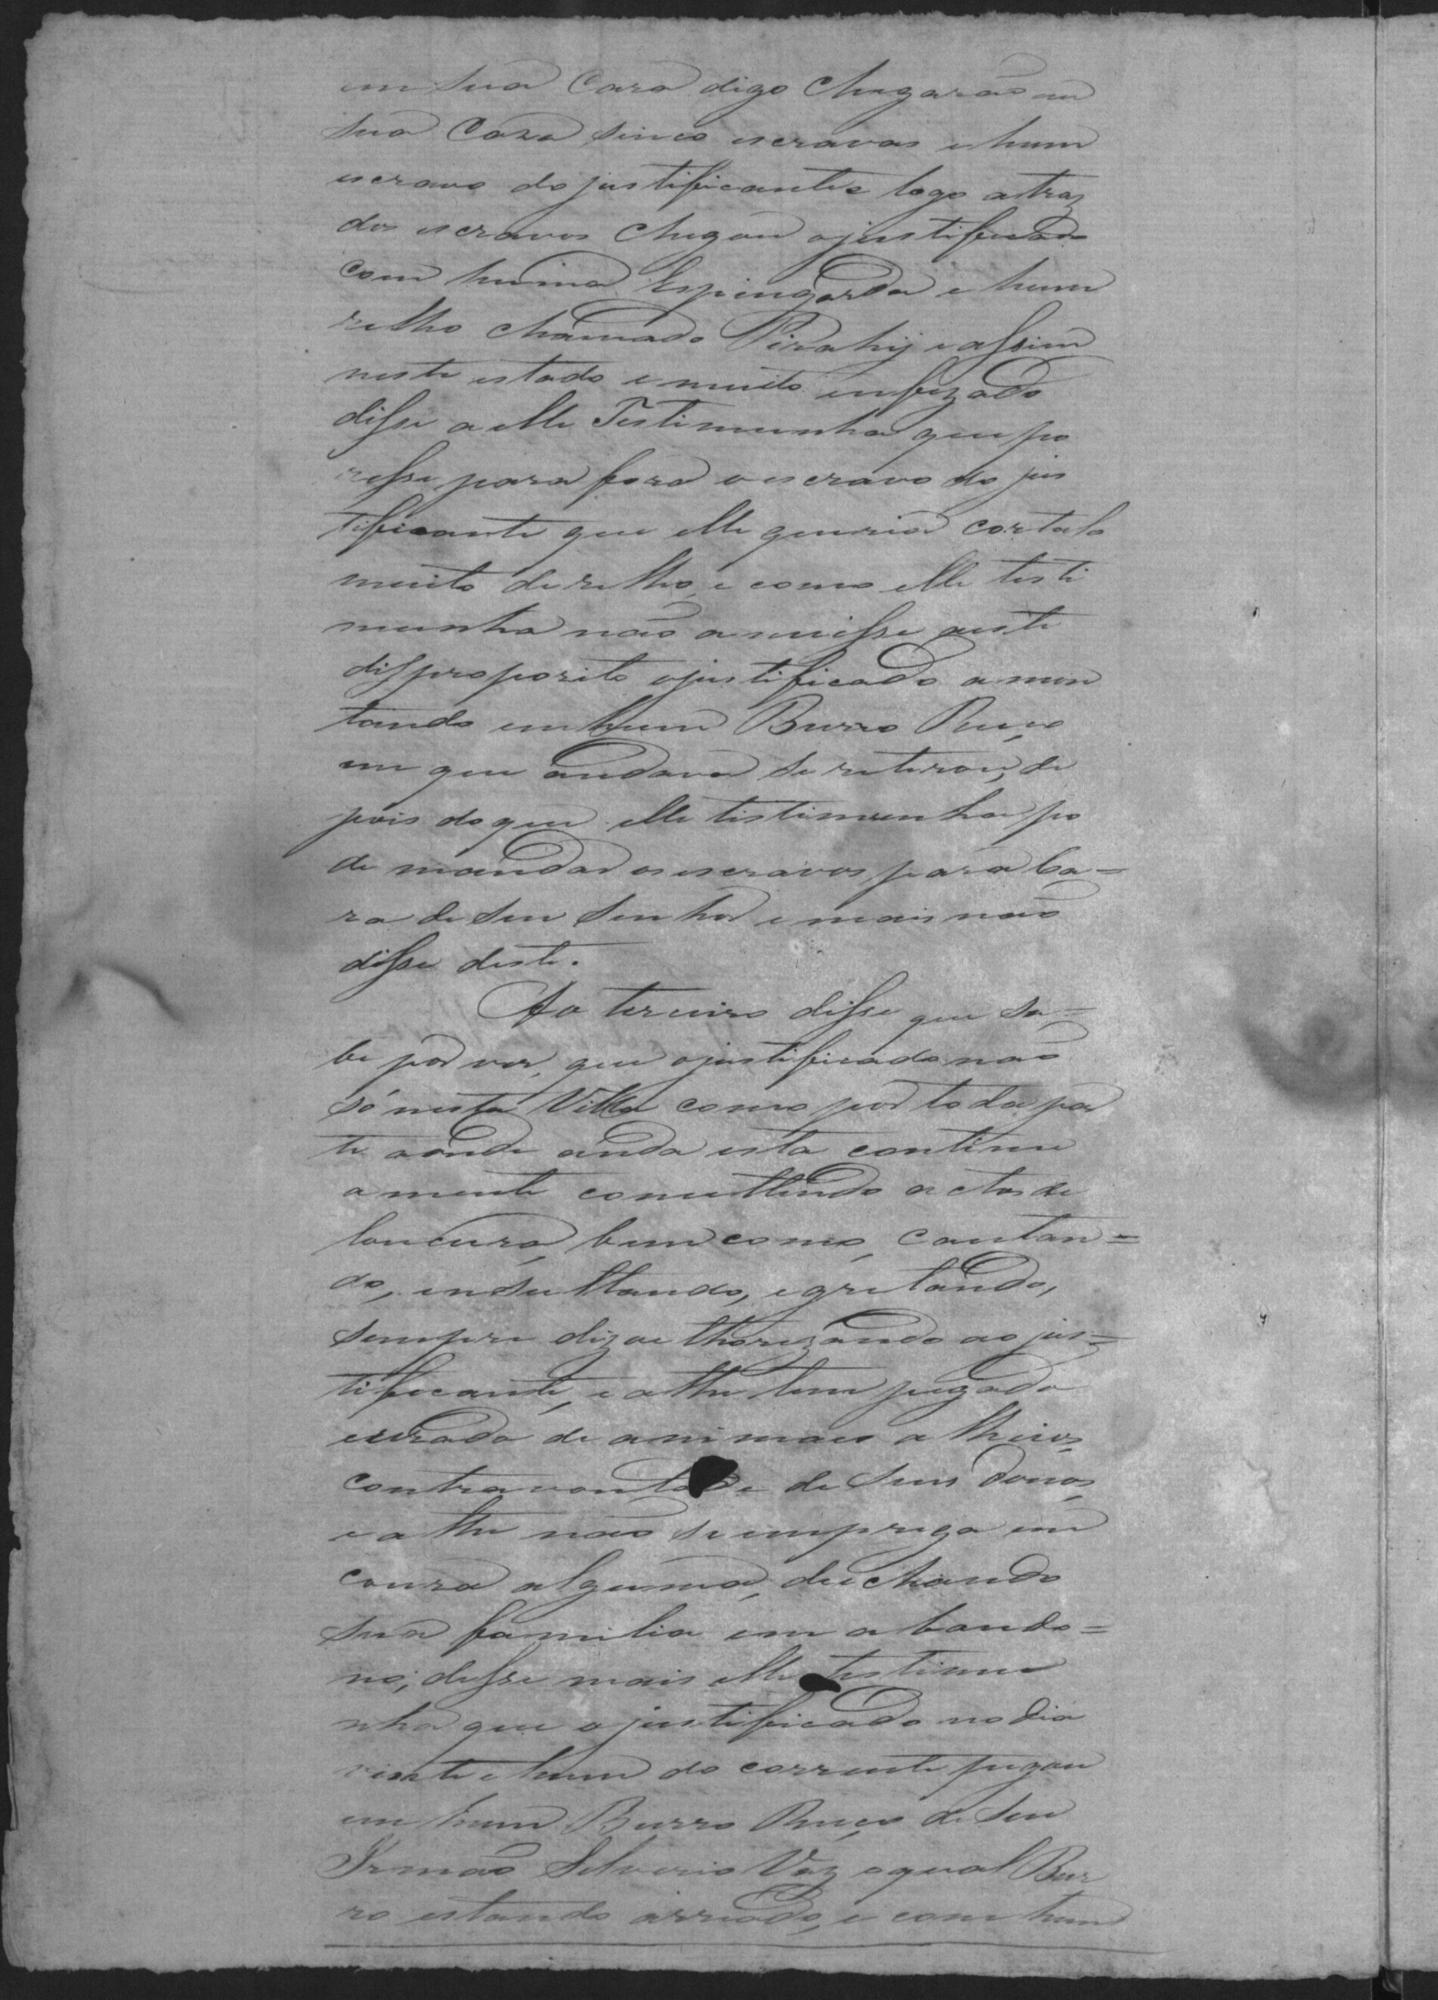 em sua Casa digo Chegarão em
sua Casa sinco escravas e hum
escravo do justificante e logo atraz
dos escravos chegou o justificado
com huma Espingarda e hum
relho chamado Pirahy e assim
neste estado e muito enfezado
disse a elle Testimunha que po
zesse para fora o escravo do jus
tificante que elle queria cortalo
muito de relho, e como elle testi
munha não anuisse neste
dispproposito o justificado amon
tando em hum Burro Ruço
em que andava se retirou, de
pois do que elle testimunha po
de mandar os escravos para Ca=
za de seu Senhor e mais não
disse deste.
Ao terceiro disse que sa=
be por ver, que o justificado não
só nesta Villa como por toda par
te aonde anda esta continu
amente comettendo actos de
loucura, bem como, cantan=
do, insultando, e gritando,
sempre dizaethorizando ao jus=
tificante, e athe tem pegado
de animaes alheios,
contra vontade de seus donos,
e athe não se emprega em
couza alguma, deichando
sua familia em abando=
no; disse mais elle testimu
nha que o justificado no dia
vinte e hum do corrente pegou
em hum Burro Ruço de seu
Irmão Silverio Vaz o qual Bur
ro estando arriado, e com hum